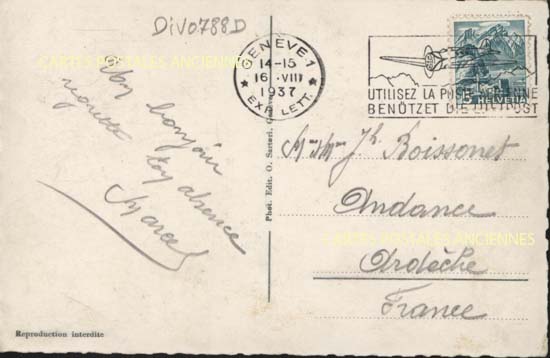 DiV0788D
CARTES POSTALES ANCIENNES
GENÈVE·1
14-15
16.VIII
1937
EXP. LETT.
UTILISEZ LA POSTE AÉRIENNE
BENÜTZET DIE LUFTPOST
HELVETIA
Mon bonjour
regrette ton absence
Marcel
Phot. Edit. O. Sartori, Genève
Boissonet
Andance
CARTES POSTALES ANCIENNES
Ardèche
France
Reproduction interdite